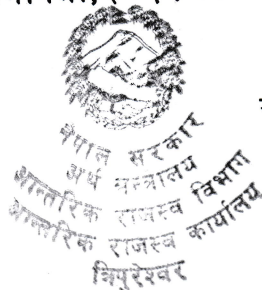 नेपाल सरकार
अर्थ मन्त्रालय
आन्तरिक राजस्व विभाग
आन्तरिक राजस्व कार्यालय
त्रिपुरेश्वर